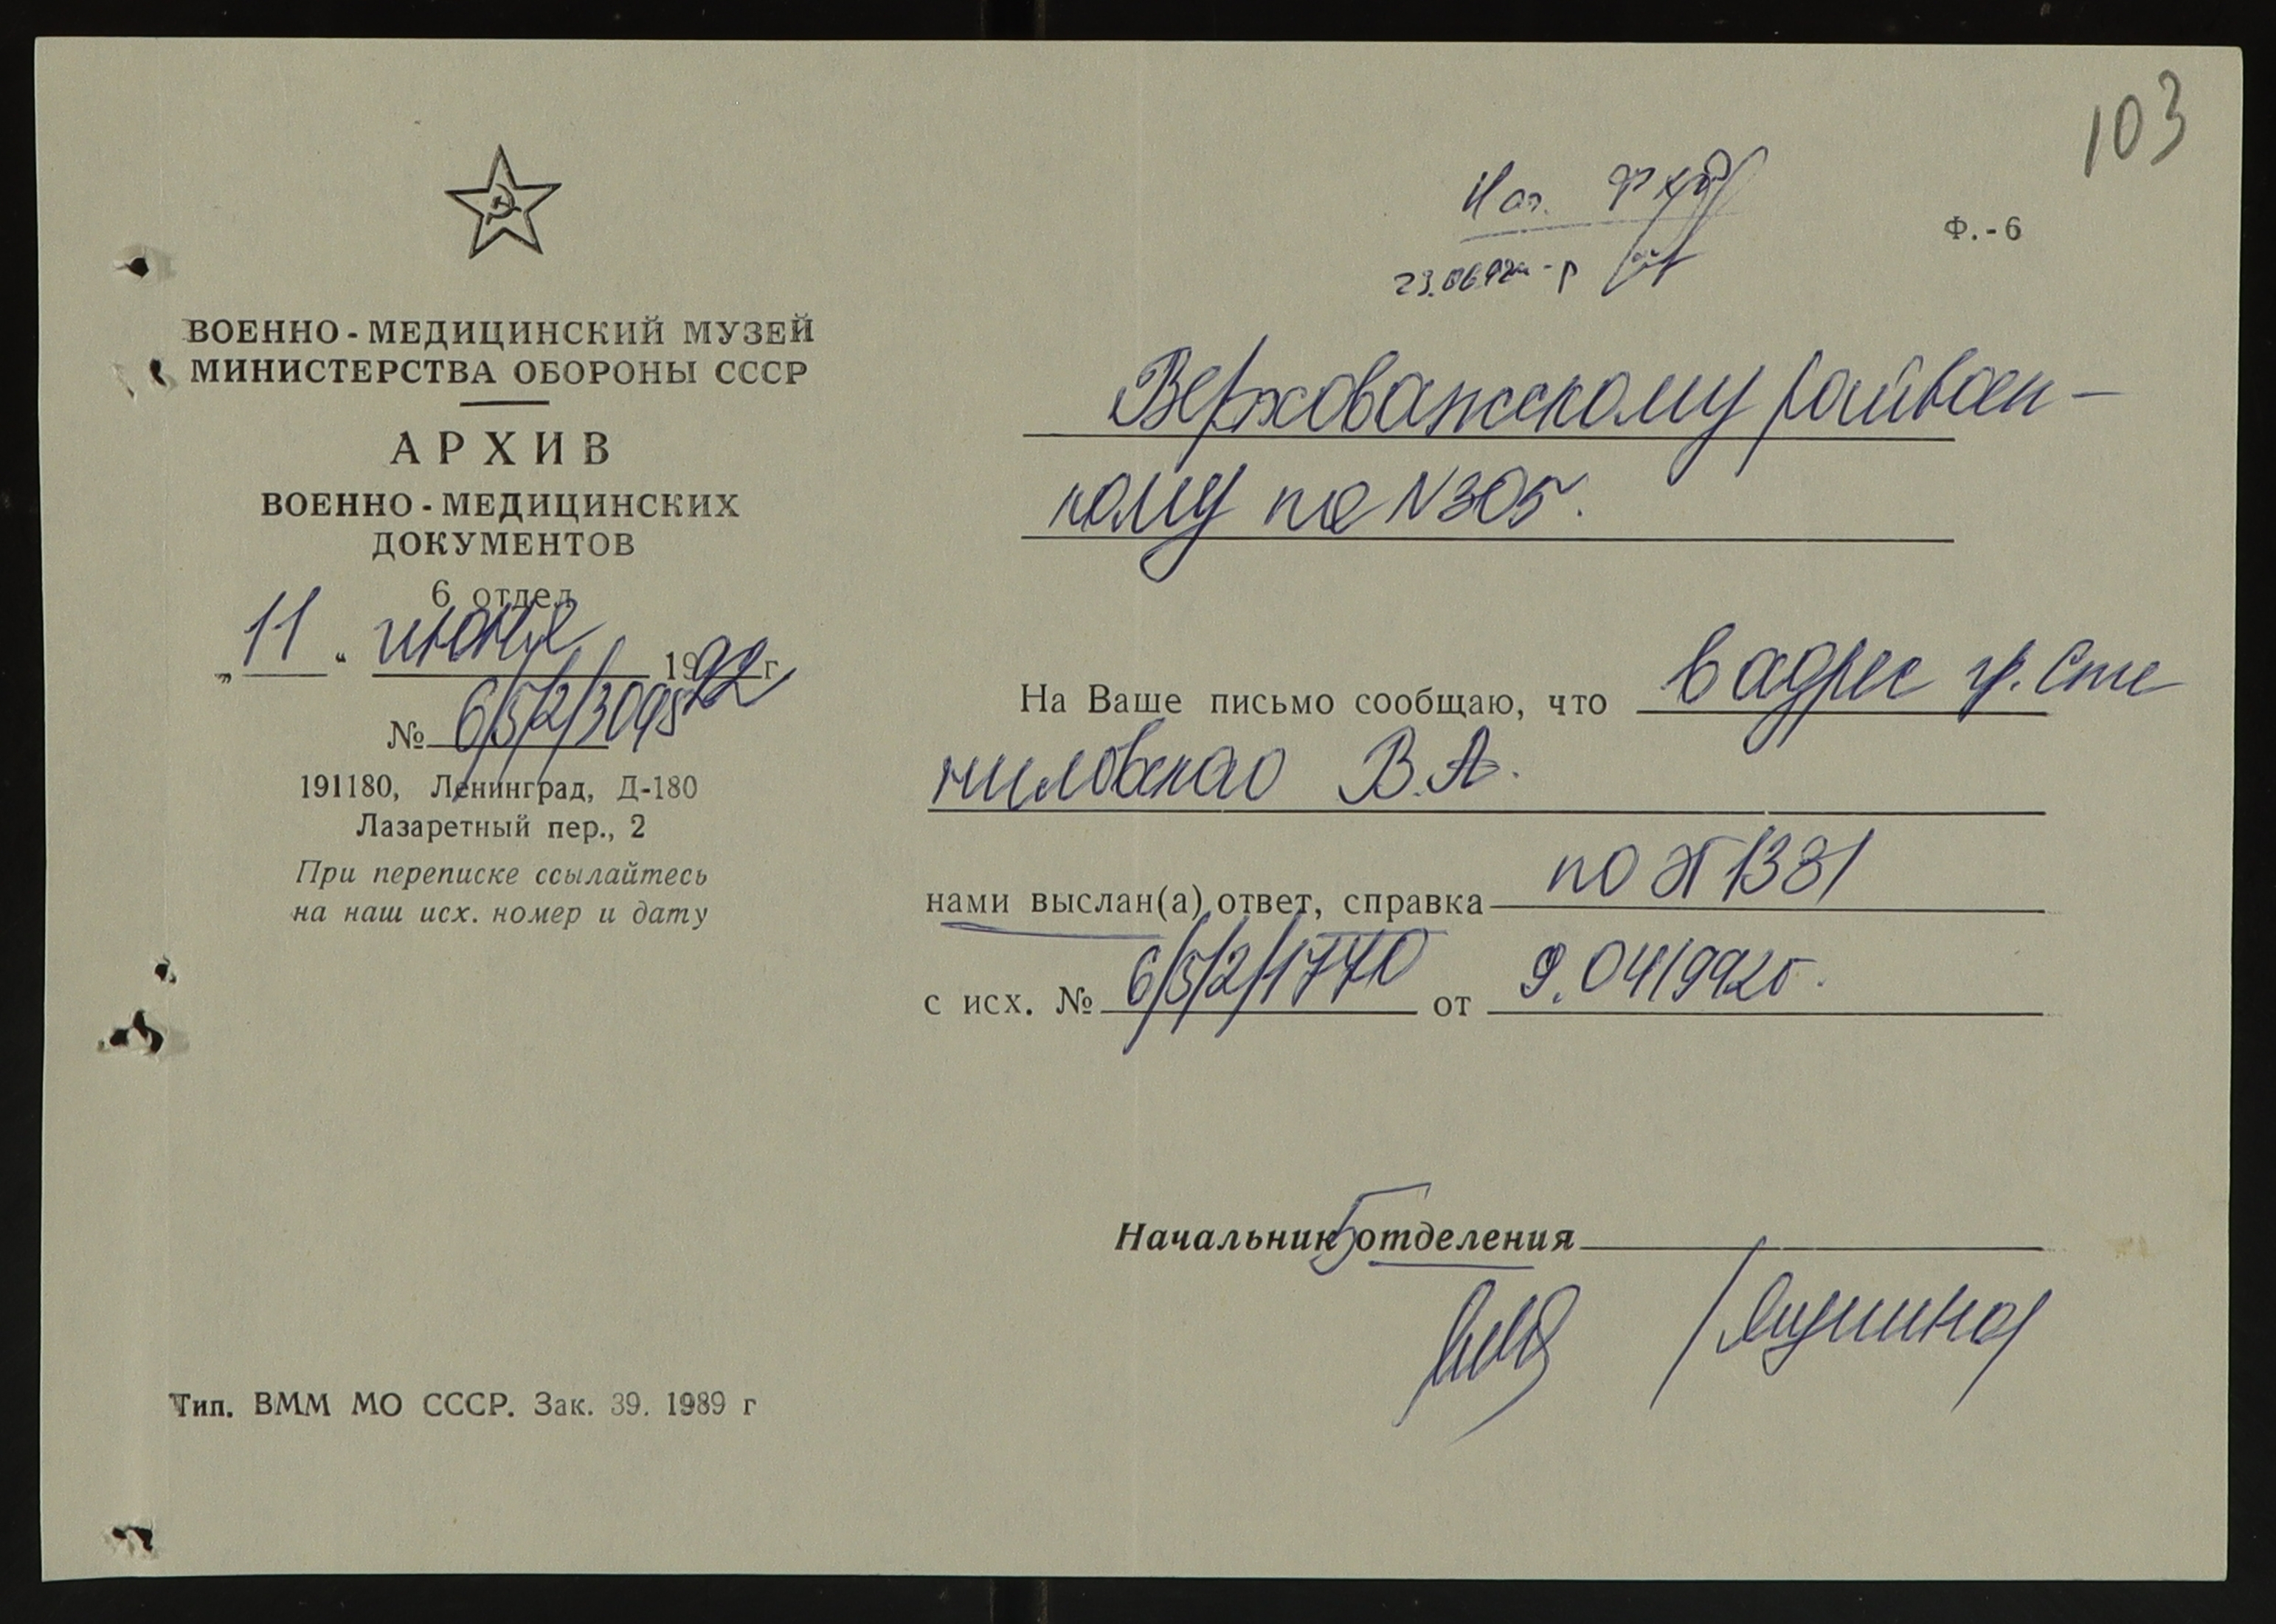 103
Ф.-6
23.06.92
ВОЕННО-МЕДИЦИНСКИЙ МУЗЕЙ
МИНИСТЕРСТВА ОБОРОНЫ СССР
АРХИВ
ВОЕННО-МЕДИЦИНСКИХ
ДОКУМЕНТОВ
6 отдел
„11“ июня 1992 г
№ 6/5/2/3095
191180, Ленинград, Д-180
Лазаретный пер., 2
При переписке ссылайтесь
на наш исх. номер и дату
Тип. ВММ МО СССР. Зак. 39. 1989 г
Верховажскому райвоен-
кому на N 305.
На Ваше письмо сообщаю, что в адрес гр. Сте
миловского В.А.
нами выслан(а) ответ, справка по 1381
с исх. № 6/5/2/1770 от 9.041992г.
Начальник 5 отделения